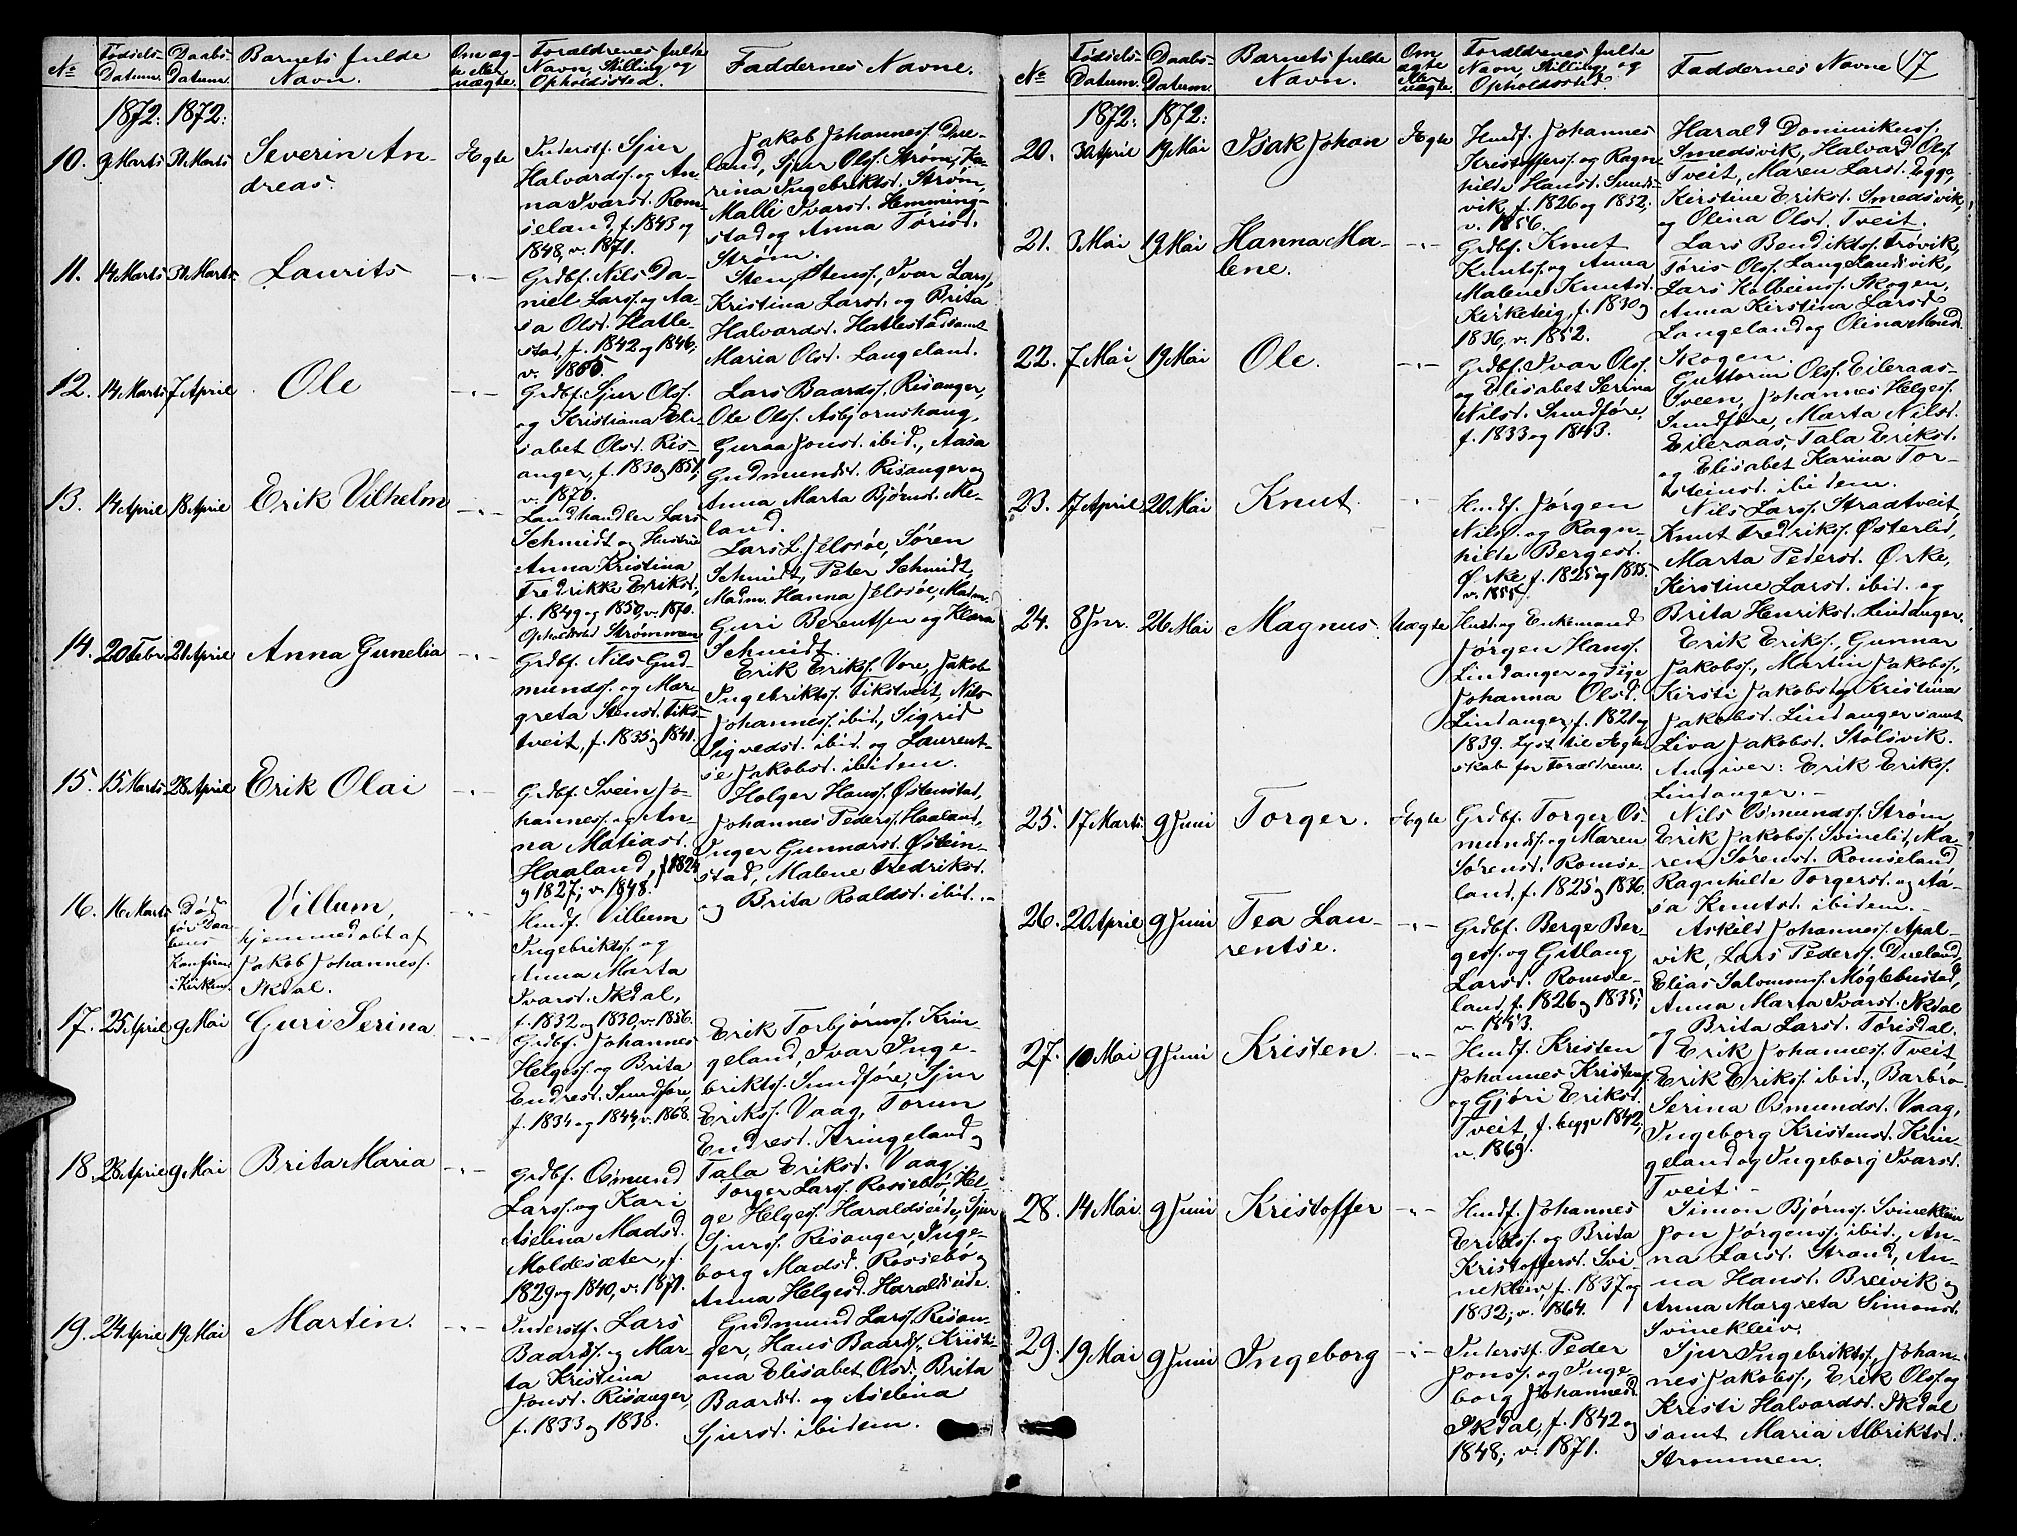 №
Fødsels-
Datum.
Daabs-
Datum.
Barnets fulde
Navn.
Om æg-
te eller
uægte.
Forældrenes fulde
Navn, Stilling og
Opholdssted.
Faddernes Navne.
1872: 1872:
10. 9 Marts 31 Marts Severin An-
dreas.
Ægte
Inderstf. Sjur
Halvards. og An-
na Ivarsd. Rom-
seland, f. 1843 og
1848, v. 1871.
Jakob Johanness. Due-
land, Sjur Ols. Strøm, Ka-
rina Ingebriktsd. Strøm,
Malli Ivarsd. Hemming-
stad og Anna Tørisd.
Strøm.
11. 14 Marts 31 Marts Laurits
-"-
Grdbf. Nils Da-
niel Larss. og Aa-
sa Olsd. Hatle-
stad, f. 1842 og 1846,
v. 1865.
Sten Stenss., Ivar Larss.,
Kristina Larsd. og Brita
Halvardsd. Hatlestad samt
Maria Olsd. Langeland.
12. 14 Marts 7 April Ole
-"-
Grdbf. Sjur Ols.
og Kristiana Eli-
sabet Olsd. Ris-
anger, f. 1830 og 1851,
v. 1870.
Lars Baards. Risanger,
Ole Ols. Asbjørnshaug,
Guraa Jonsd. ibid., Aasa
Gudmunsd. Risanger og
Anna Marta Bjørnsd. Me-
land.
13. 14 April 18 April Erik Vilhelm
-"-
Landhandler Lars
Schmidt og Hustrue
Anna Kristina
Fredrikke Eriksd.,
f. 1849 og 1850, v. 1870.
Opholdssted Strømmen
Lars L. Jelsøe, Søren
Schmidt, Peter Schmidt,
Madm. Hanna Jelsøe, Madm.
Guri Berentsen og Klara
Schmidt.
14. 20 Febr. 21 April Anna Gunelia
-"-
Grdbf. Nils Gud-
munds. og Mar-
greta Stensd. Tiks-
tveit, f. 1835 og 1841.
Erik Eriks. Vore, Jakob
Ingebrikts. Tikstveit, Nils
Johanness. ibid., Sigrid
Sigvedsd. ibid. og Laurent-
se Jakobsd. ibidem.
15. 15 Marts 28 April Erik Olai
-"-
Grdbf. Svein Jo-
hanness. og An-
na Matiasd.
Haaland, f. 1824
og 1827; v. 1848.
Holger Hans. Østenstad,
Johannes Peders. Haaland,
Inger Gunnarsd. Østein-
stad, Malene Fredriksd.
og Brita Roaldsd. ibid.
16. 16 Marts Død
før Daa-
bens
Konfirm.
i Kirken.
Villum,
hjemmedøbt af
Jakob Johanness.
Ikdal.
-"-
Husmf. Villum
Ingebrikts. og
Anna Marta
Ivarsd. Ikdal,
f. 1832 og 1830, v. 1856.
17. 25 April 9 Mai Guri Serina
-"-
Grdbf. Johannes
Helges. og Brita
Endresd. Sundføre,
f. 1834 og 1844, v. 1868.
Erik Torbjørns. Krin-
geland, Ivar Inge-
brikts. Sundføre, Sjur
Eriks. Vaag, Torun
Endresd. Kringeland og
Tala Eriksd. Vaag.
18. 28 April 9 Mai Brita Maria
-"-
Grdbf. Osmund
Larss. og Kari
Aselina Madsd.
Moldesæter, f.
1829 og 1840, v. 1871.
Torger Larss. Rossebø, Hel-
ge Helges. Haraldseide, Sjur
Sjurs. Risanger, Inge-
borg Madsd. Rossebø og
Anna Helgesd. Haraldseide.
19. 24 April 19 Mai Martin.
-"-
Inderstf. Lars
Baards. og Mar-
ta Kristina
Jonsd. Risanger,
f. 1833 og 1838.
Gudmund Larss. Risan-
ger, Hans Baards., Kristi-
ana Elisabet Olsd., Brita
Baardsd. og Aselina
Sjursd. ibidem.
№
Fødsels-
Datum.
Daabs-
Datum.
Barnets fulde
Navn.
Om
ægte
eller
uægte.
Forældrenes fulde
Navn, Stilling og
Opholdssted.
Faddernes Navne
17
1872: 1872:
20. 30 April 19 Mai Isak Johan
Ægte
Husmf. Johannes
Kristoffers. og Ragn-
hilde Hansd. Smeds-
vik, f. 1826 og 1832,
v. 1856.
Harald Dominikuss.
Smedsvik, Halvard Ols.
Tveit, Maren Larsd. Egge,
Kirstine Eriksd. Smedsvik,
og Olina Olsd. Tveit.
21. 3 Mai 19 Mai Hanna Ma-
lene.
-"-
Grdbf. Knut
Knuts. og Anna
Malene Knutsd.
Kirketeig, f. 1830 og
1836, v. 1852.
Lars Bendikts. Trovik,
Tøris Ols. Langelandsvik,
Lars Kolbeins. Skogen,
Anna Kirstina Larsd.
Langeland og Olina Monsd.
Skogen.
22. 7 Mai 19 Mai Ole.
-"-
Grdbf. Ivar Ols.
og Elisabet Serina
Nilsd. Sundføre,
f. 1833 og 1843.
Guttorm Ols. Eileraas-
Sveen, Johannes Helges.
Sundføre, Marta Nilsd.
Eileraas, Tala Eriksd.
og Elisabet Karina Tor-
steinsd. ibidem.
23. 17 April 20 Mai Knut
-"-
Husmf. Jørgen
Nils. og Ragn-
hilde Bergesd.
Ørke, f. 1825 og 1835
v. 1855.
Nils Larss. Straatveit,
Knut Fredriks. Østerlid,
Marta Pedersd. Ørke,
Kirstine Larsd. ibid. og
Brita Henriksd. Lindanger.
24. 8 Jnr. 26 Mai Magnus
Uægte
Husm. og Enkemand
Jørgen Hans.
Lindanger og Pige
Johanna Olsd.
Lindanger, f. 1821 og
1839. Lyst til Ægte-
skab for Forældrene.
Erik Eriks., Gunnar
Jakobs., Martin Jakobs.,
Kirsti Jakobsd. og Kristina
Jakobsd. Lindanger samt
Liva Jakobsd. Stølsvik.
Angiver: Erik Eriks.
Lindanger.
25. 17 Marts 9 Juni Torger.
Ægte
Grdbf. Torger Os-
munds. og Maren
Sørensd. Romse-
land, f. 1825 og 1836.
Nils Osmunds. Strøm,
Erik Jakobs. Svinelid, Ma-
ren Sørensd. Romseland,
Ragnhilde Torgersd. og Aa-
sa Knutsd. ibidem.
26. 20 April 9 Juni Tea Lau-
rentse.
-"-
Grdbf. Berge Ber-
gess. og Gitlaug
Larsd. Romse-
land, f. 1826 og 1835;
v. 1853.
Askild Johanness. Apal-
vik, Lars Peders. Dueland,
Elias Salomons. Møglebustad,
Anna Marta Ivarsd. Ikdal
og Brita Larsd. Tørisdal.
27. 10 Mai 9 Juni Kristen.
-"-
Husmf. Kristen
Johannes Kristens.
og Gjøri Eriksd.
Tveit, f. begge 1842,
v. 1869.
Erik Johanness. Tveit,
Erik Eriks. ibid., Barbro
Serina Osmundsd. Vaag,
Ingeborg Kristensd. Krin-
geland og Ingeborg Ivarsd.
Tveit.
28. 14 Mai 9 Juni Kristoffer
-"-
Husmf. Johannes
Eriks. og Brita
Kristoffersd. Svi-
nekleiv, f. 1837 og
1832; v. 1864.
Simon Bjørns. Svinekleiv
Jon Jørgens. ibid., An-
na Larsd. Strand, An-
na Hansd. Breivik og
Anna Margreta Simonsd.
Svinekleiv.
29. 19 Mai 9 Juni Ingeborg
-"-
Inderstf. Peder
Jons. og Inge-
borg Johannesd.
Ikdal, f. 1842 og
1848; v. 1871.
Sjur Ingebrikts., Johan-
nes Jakobs., Erik Ols. og
Kristi Halvardsd. Ikdal
samt Maria Albriktsd.
Strømmen.